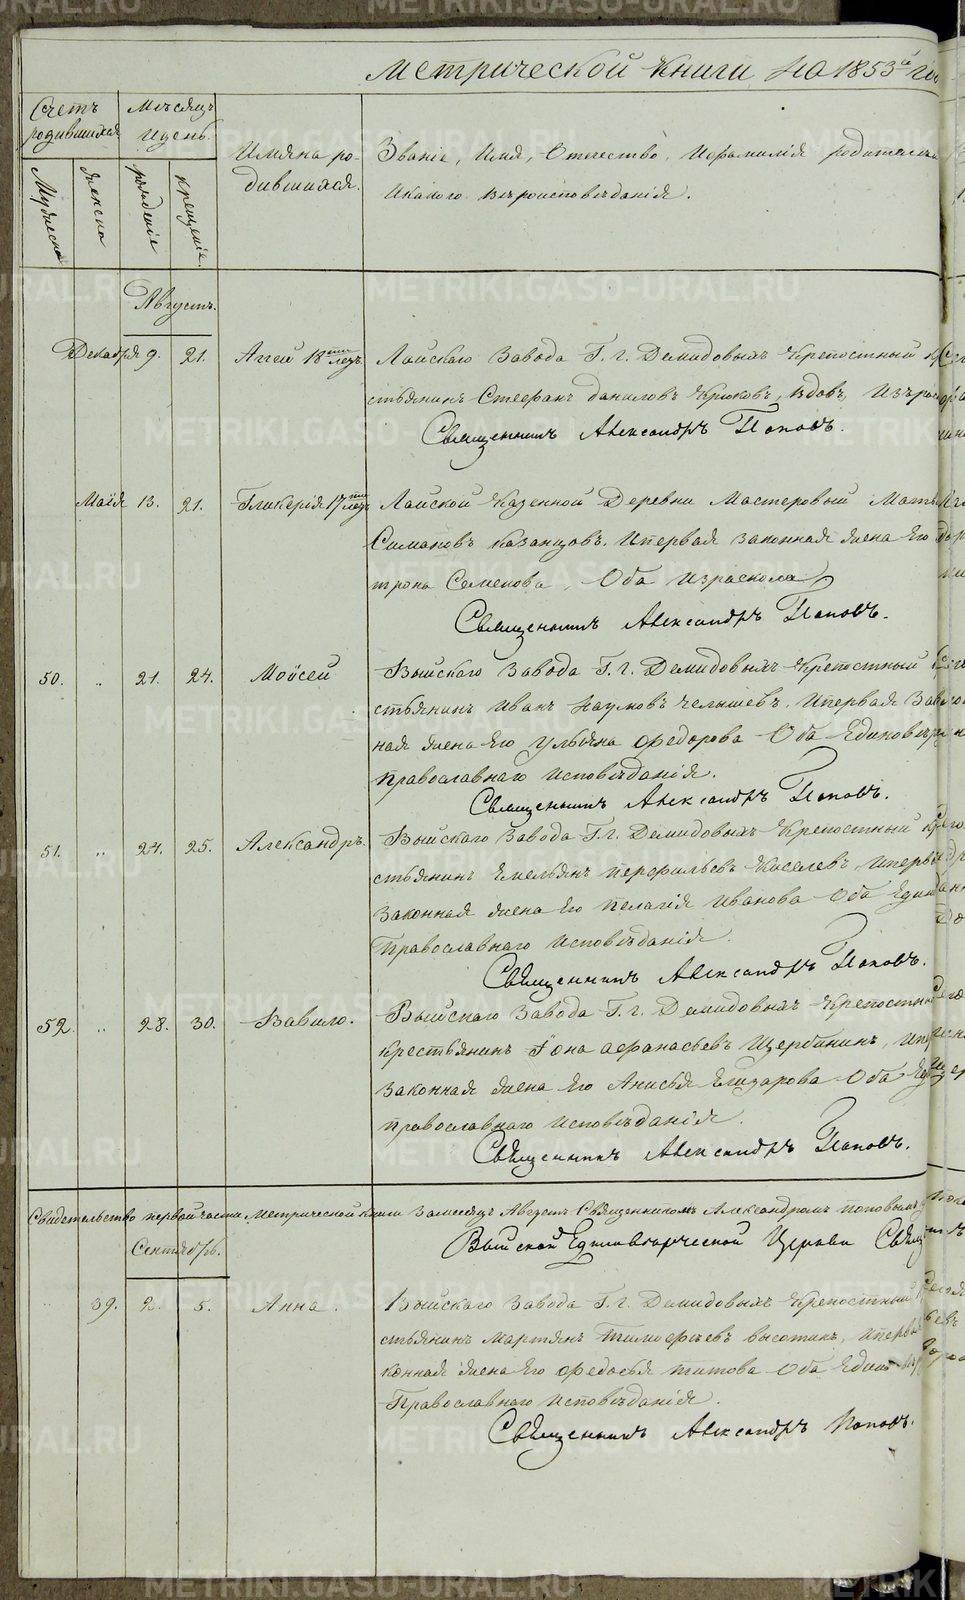 Метрической книги на 1853й го
Счетъ родившихся
Мѣсяцъ и день
Имяна родившихся.
Званіе, Имя, Отечество, И фамилія родителей
И какого вѣроисповѣданія.
Мужеска
Женска
рожденіе
крещеніе.
Августъ.
Декабря 9. 21. Аггей 18ти лѣтъ Лайскаго Завода Г. г. Демидовыхъ Крепостный кр
стьянинъ Стефанъ Даниловъ Крюковъ, вдовъ,
Священникъ Александръ Поповъ.
Маія 13. 21. Гликерія 17ти лѣтъ Лайской Казенной Деревни Мастеровый
Симановъ Казанцовъ. И первая законная жена Его
трона Семенова, Оба из раскола
Священникъ Александръ Поповъ.
50. " 21. 24. Моѵсей Выйскаго Завода Г. г. Демидовыхъ Крепостный
стьянинъ Иванъ Наумовъ Челышевъ. И первая Зак
ная жена Его Ульяна Федорова Оба Единовѣр
православнаго исповѣданія.
Священникъ Александръ Поповъ.
51. " 24. 25. Александръ. Выйскаго Завода Г. г. Демидовыхъ Крепостный кр
стьянинъ Емельянъ Перфильевъ Киселевъ, И перв
Законная жена Его Пелагія Иванова Оба Един
Православнаго исповѣданія.
Священникъ Александръ Поповъ.
52. " 28. 30. Вавило. Выйскаго Завода Г. г. Демидовыхъ Крепостн
крестьянинъ Іона Афанасьевъ Щербининъ,
Законная жена Его Анисья Елизарова Оба
православнаго исповѣданія.
Священникъ Александръ Поповъ.
Свидетельство первой части Метрической книги За месяцъ Августъ Священникомъ Александромъ Поповымъ
Выйской Единоверческой Церкви Свящ
Сентябрь.
39. 2. 5. Анна. Выйскаго Завода Г. г. Демидовыхъ Крепостный
стьянинъ Мартянъ Тимофеевъ Высотинъ, И перв
конная жена Его Федосья Титова Оба Един
Православнаго исповѣданія.
Священникъ Александръ Поповъ.
METRIKI.GASO-URAL.RU